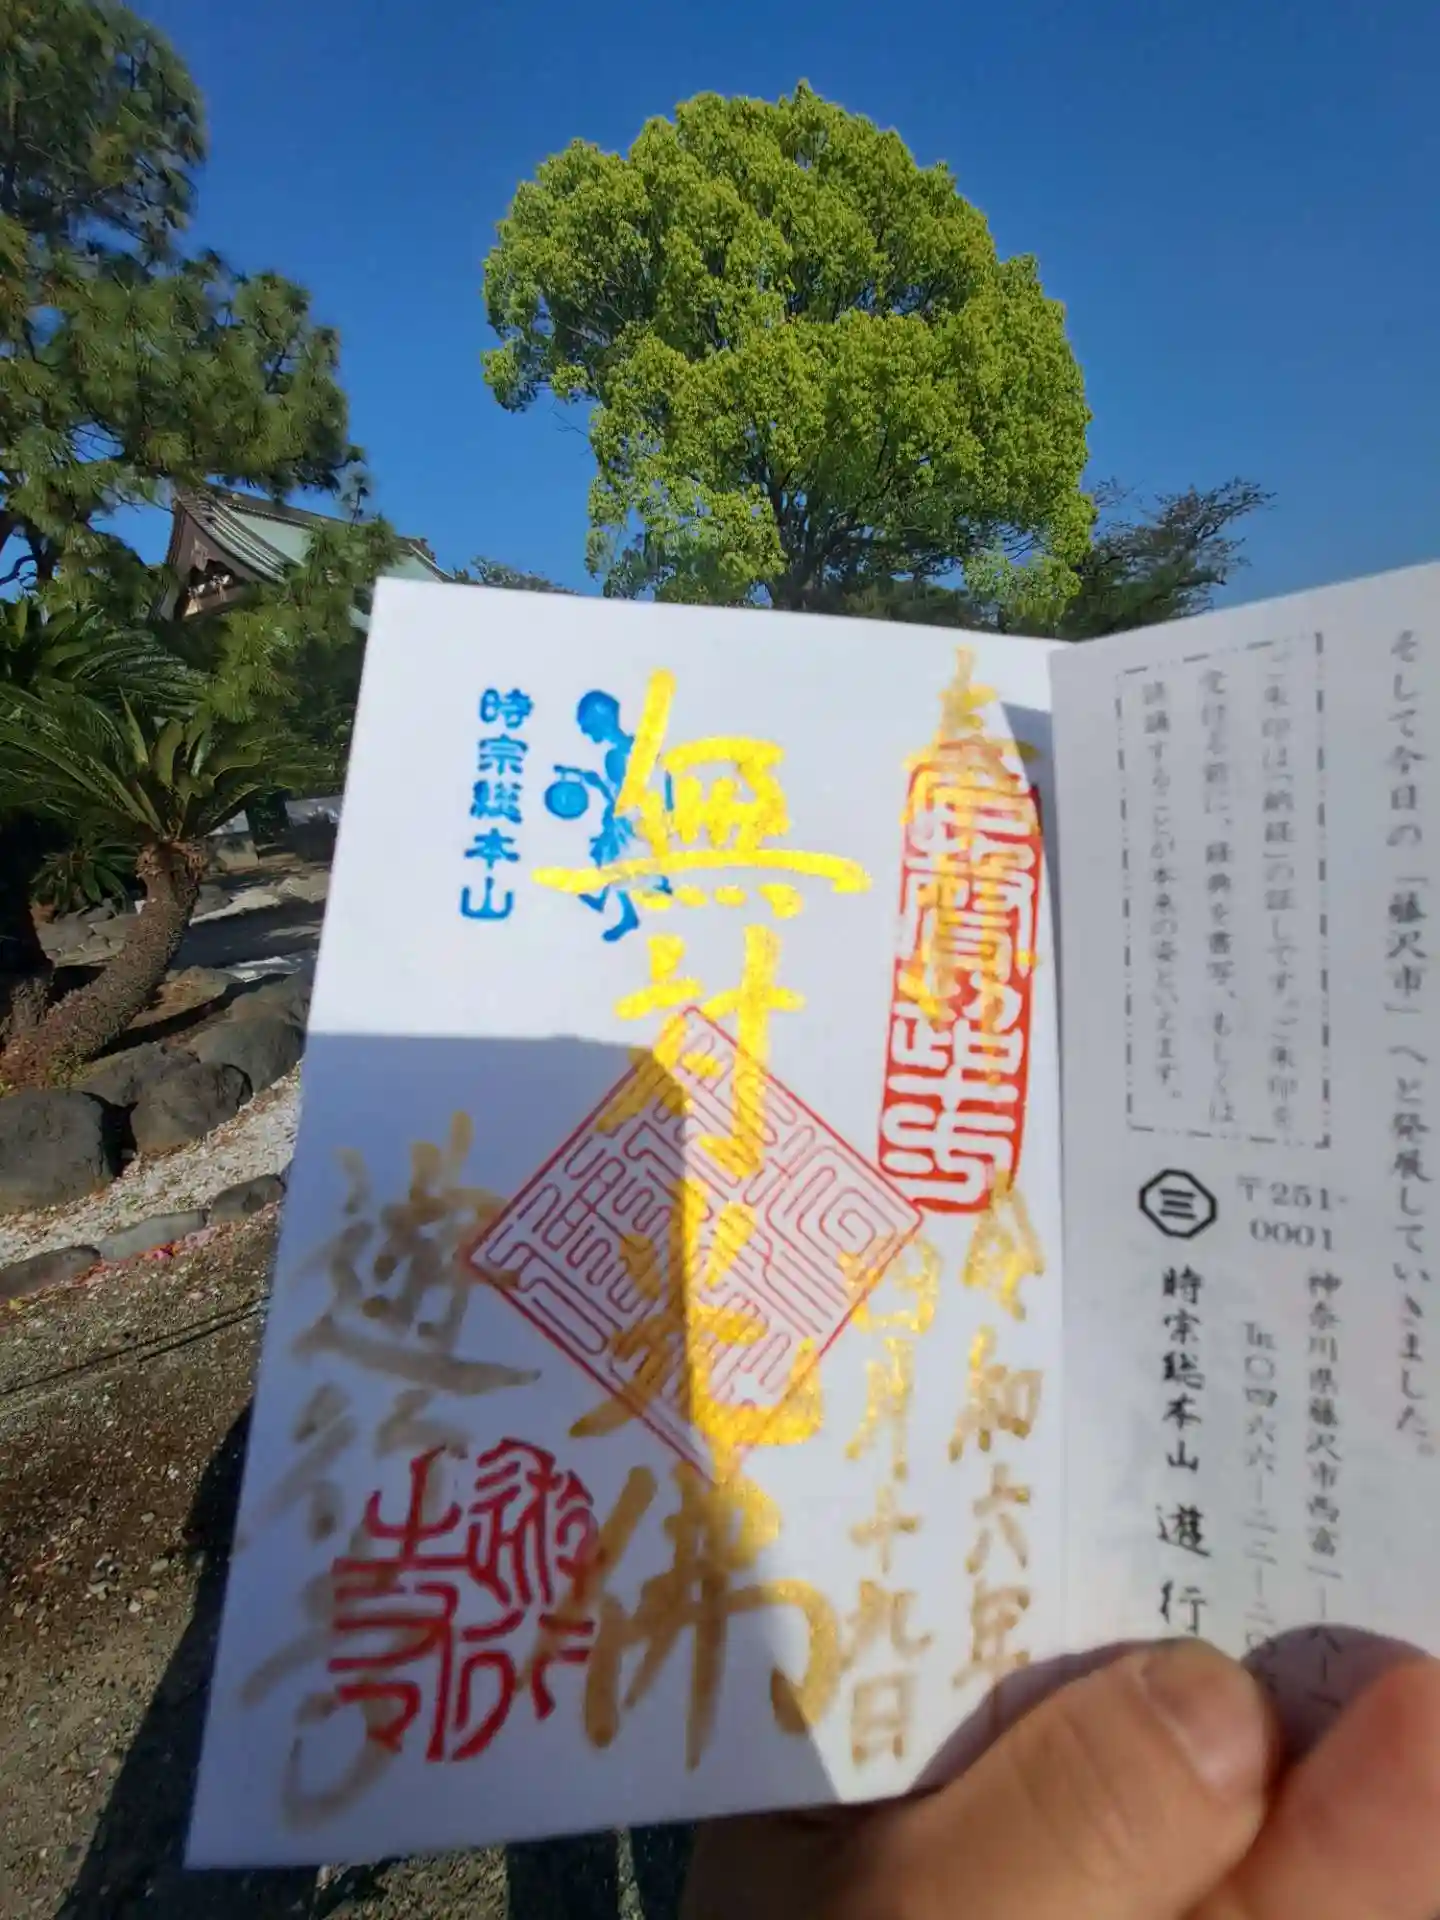 そして今日の「藤沢市」へと発展していきました。
ご朱印は「納経」の証しです。ご朱印を
受ける前に、経典を書写、もしくは
読誦することが本来の姿といえます。
〒251-
0001
神奈川県藤沢市西富一―八―
℡〇四六六―二二―二〇
三
時宗総本山 遊行
令和六年
四月十九日
無量光佛
時宗総本山
遊行寺
遊行寺